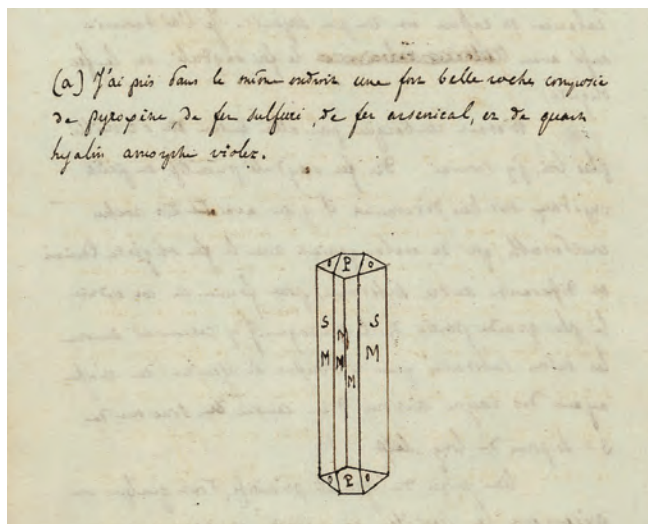 (a) J'ai pris dans le même endroit une fort belle roche composée
de pyroxène, de fer sulfuré, de fer arsenical, et de quarz
hyalin amorphe violet.
o P o
S S
M M M
M
M
o P o